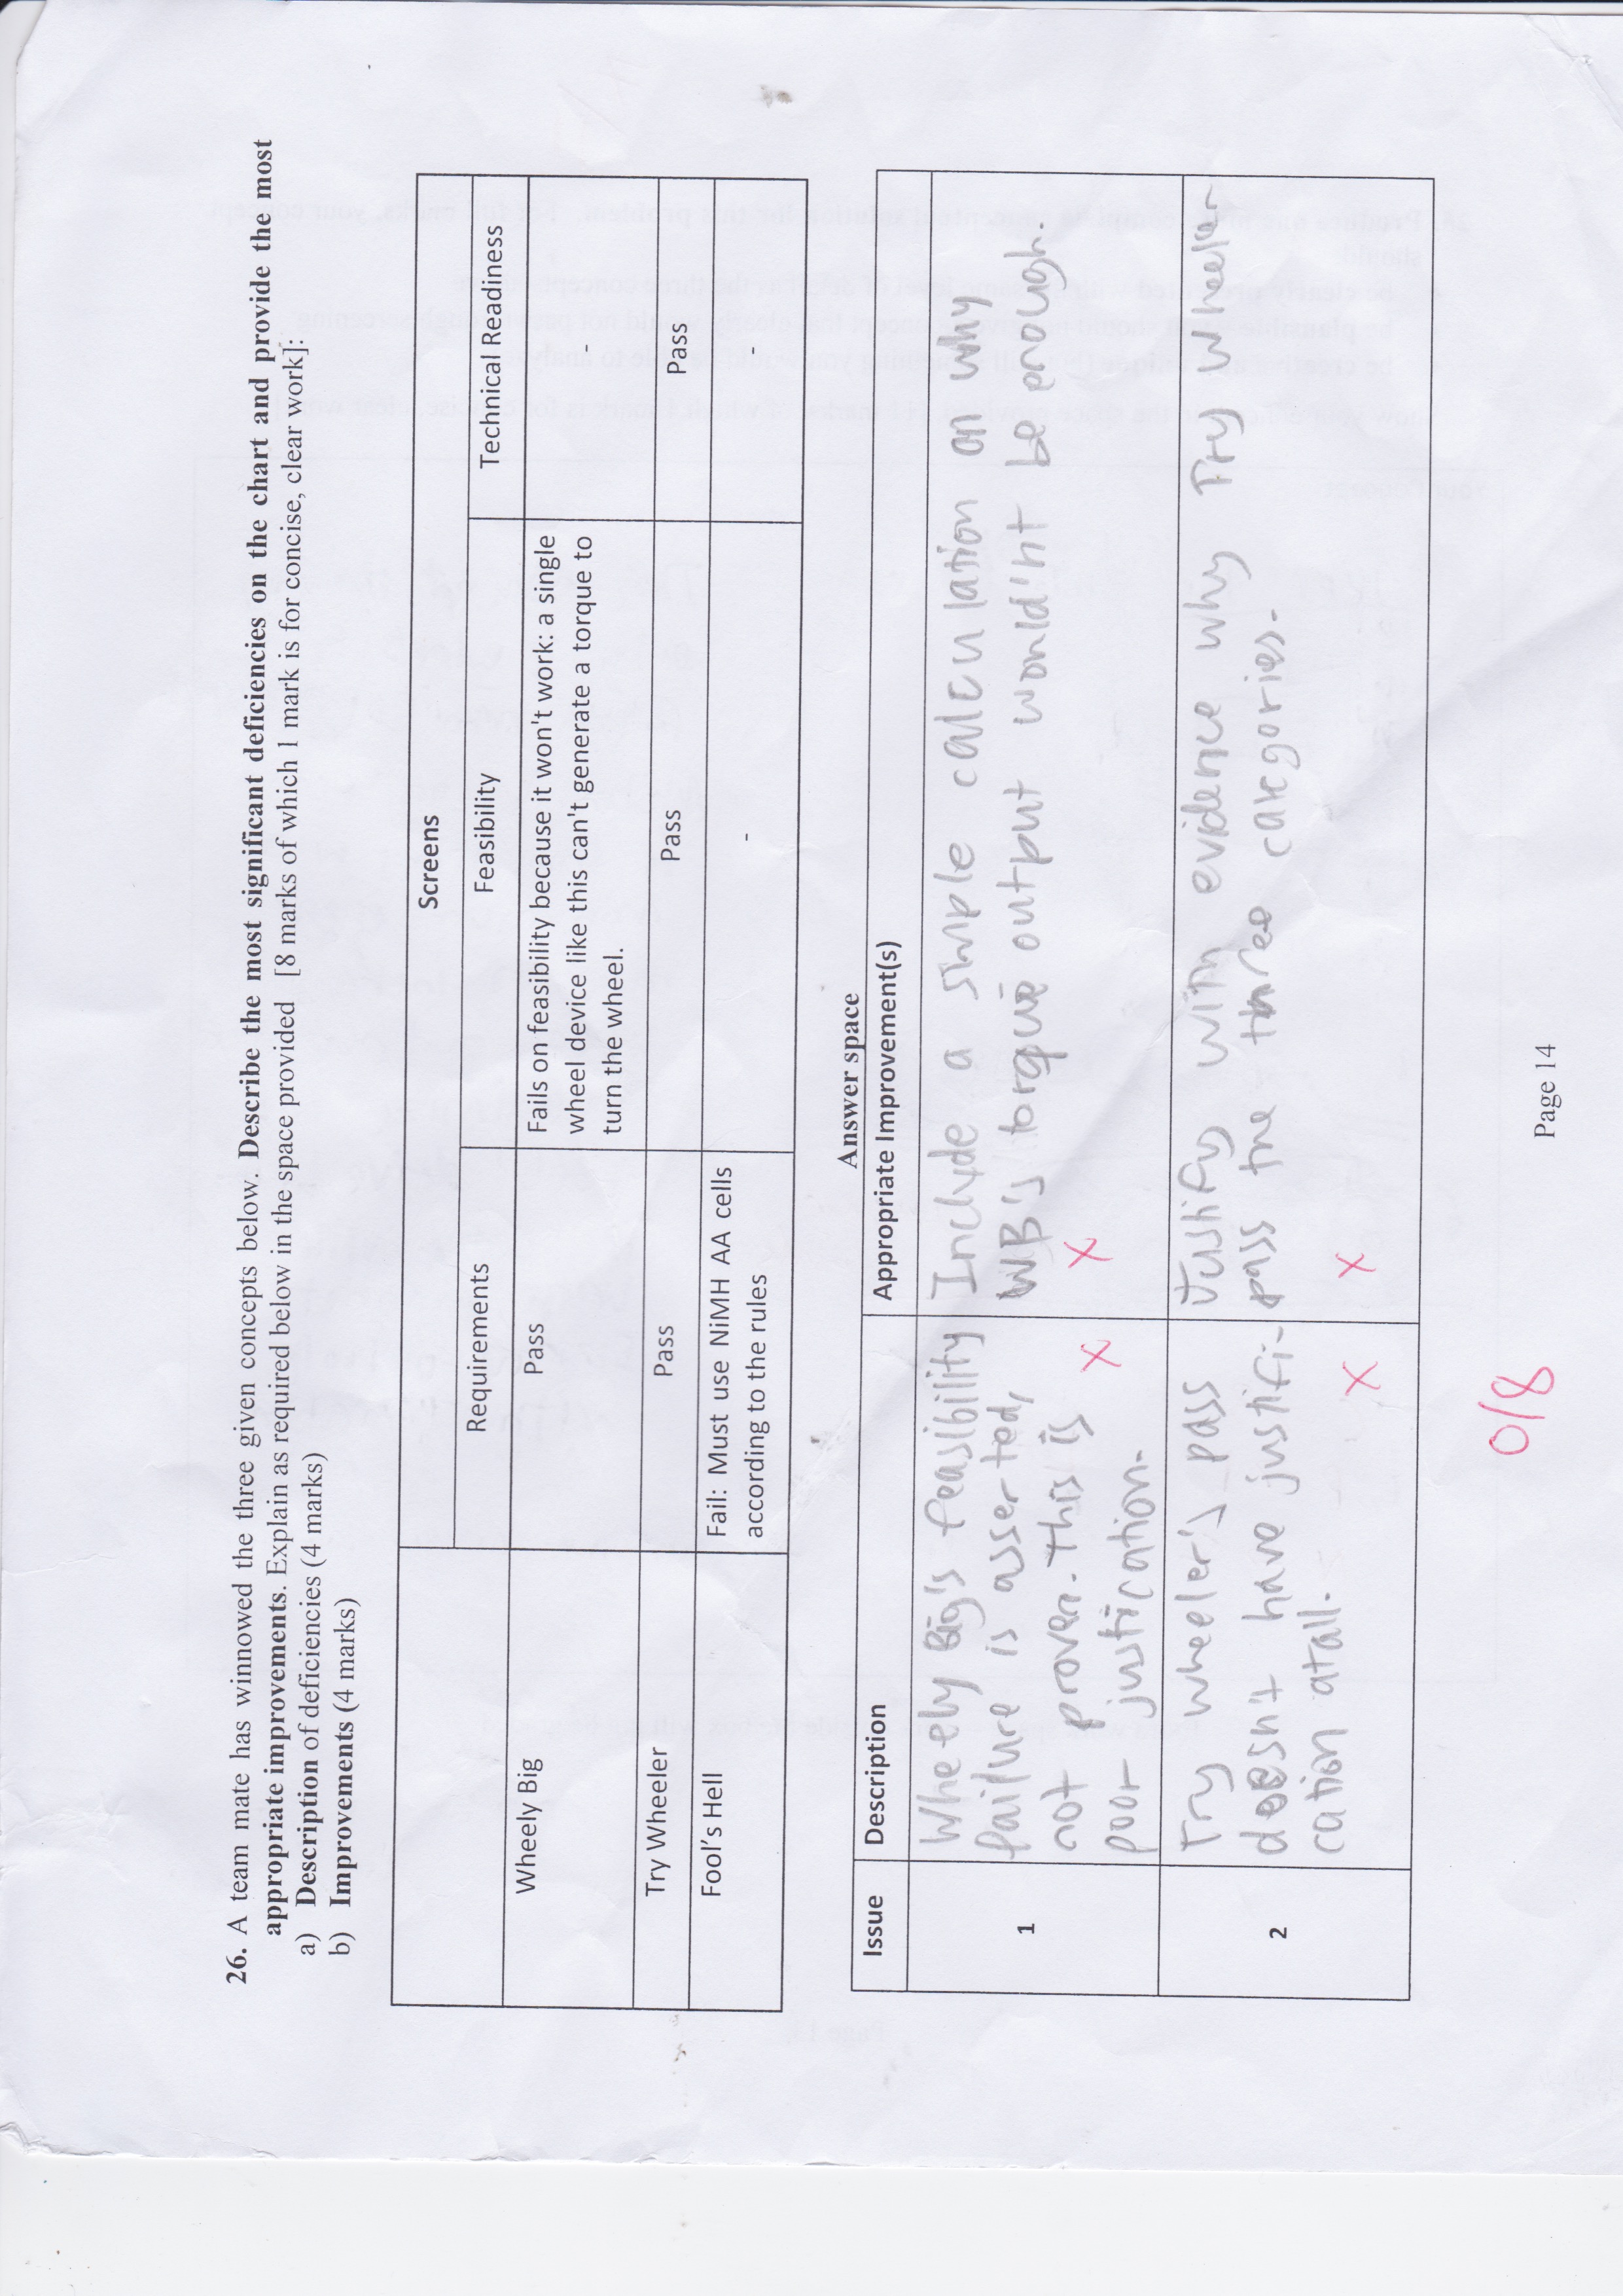 26. A team mate has winnowed the three given concepts below. Describe the most significant deficiencies on the chart and provide the most
appropriate improvements. Explain as required below in the space provided [8 marks of which 1 mark is for concise, clear work]:
a) Description of deficiencies (4 marks)
b) Improvements (4 marks)
Screens
Requirements Feasibility Technical Readiness
Wheely Big Pass Fails on feasibility because it won't work: a single -
wheel device like this can't generate a torque to
turn the wheel.
Try Wheeler Pass Pass Pass
Fool's Hell Fail: Must use NiMH AA cells - -
according to the rules
Answer space
Issue Description Appropriate Improvement(s)
1
Wheely Big's feasibility
failure is asserted,
not proven. This is
poor justication.
Include a simple calculation on why
WB's torque output would'nt be enough.
X X
2
Try wheeler's pass
doesn't have justifi-
cation atall.
Justify with evidence why Try wheeler
pass the three categories.
X X
0/8
Page 14